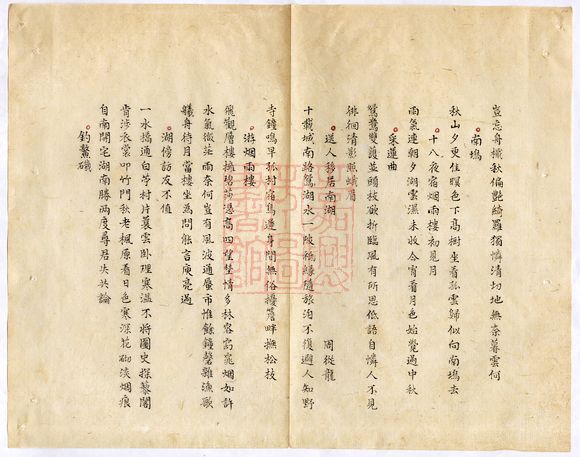 豈忘舟檝秋偏艷綺羅獨憐清切地無奈暮雲何
南塢
秋山夕更佳暝色下高樹坐看孤雲歸似向南塢去
十八夜宿烟雨樓初見月
雨氣連朝夕湖雲濕未收今宵看月色始覺過中秋
采蓮曲
鴛鴦雙護並頭枝欲折臨風有所思低語自憐人不見
徘徊清影照蛾眉
送人移居南湖
周從龍
十載城南路鴛湖水一陂秖緣隨旅泊不復避人知野
寺鐘鳴早孤村宿鳥遲身閒無俗擾籬畔撫松枝
遊烟雨樓
飛觀層樓撫碧莎憑高四望楚情多林容窈窕烟如許
水氣微茫雨奈何豈有風波通蜃市惟餘鐘磬雜漁歌
艤舟待月當樓坐為問能言庾亮過
湖傍訪友不值
一水橋通白苧村片蓑雲臥理寒温不將圖史探藜閣
肯涉衣裳叩竹門秋老楓原看日色寒深花砌淡烟痕
自南開宅湖南勝兩度尋君共論
釣鰲磯